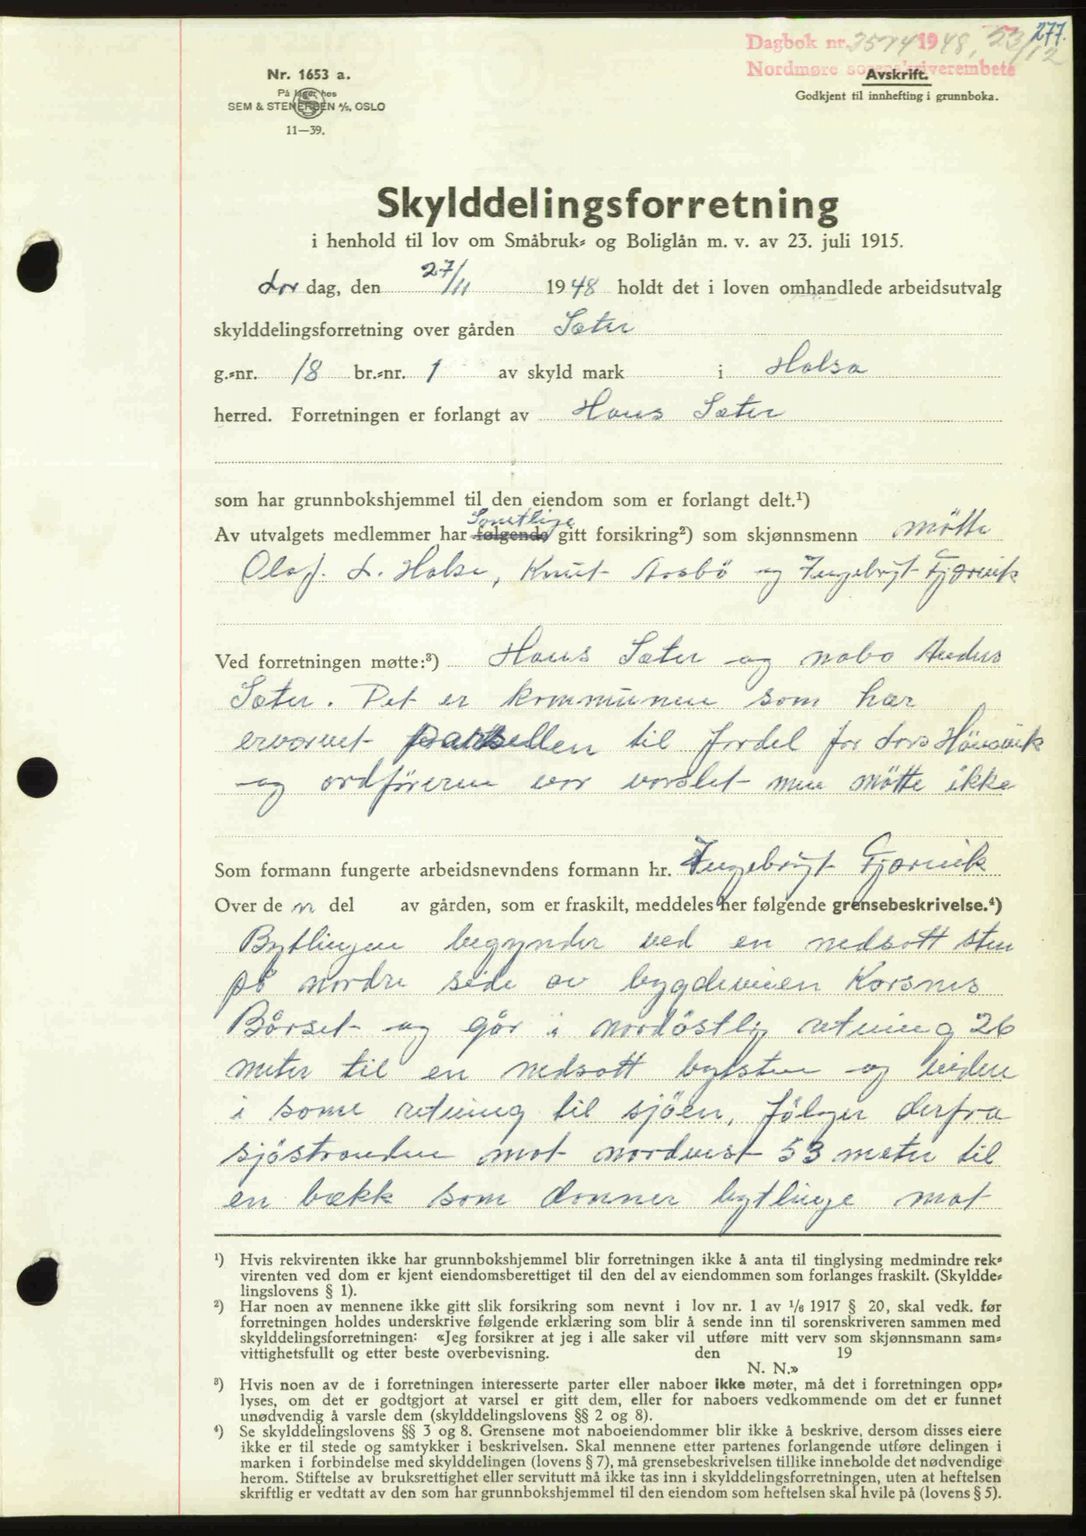 277.
Dagbok nr. 3574 1948, 23/12
Nordmøre sorenskriverembete
Nr. 1653 a.
På lager hos
SEM & STENERSEN A/S, OSLO
11—39.
Avskrift.
Godkjent til innhefting i grunnboka.
Skylddelingsforretning
i henhold til lov om Småbruk- og Boliglån m. v. av 23. juli 1915.
Lør dag, den 27/11 1948 holdt det i loven omhandlede arbeidsutvalg
skylddelingsforretning over gården Sæter
g.-nr. 18 br.-nr. 1 av skyld mark i Halsa
herred. Forretningen er forlangt av Hans Sæter
som har grunnbokshjemmel til den eiendom som er forlangt delt.¹)
Samtlige
Av utvalgets medlemmer har følgende gitt forsikring²) som skjønnsmenn møtte
Olaf. L. Halse, Knut Aasbö og Ingebrigt Fjærvik
Ved forretningen møtte:³) Hans Sæter og nabo Anders
Sæter. Det er kommunen som har
ervervet parsellen til fordel for Lars Hönsvik
og ordføreren var varslet men møtte ikke
Som formann fungerte arbeidsnevndens formann hr. Ingebrigt Fjærvik
Over de n del av gården, som er fraskilt, meddeles her følgende grensebeskrivelse.⁴)
Bytlingen begynder ved en nedsatt sten
på nordre side av bygdeveien Korsnes
Bårset og går i nordöstlig retning 26
meter til en nedsatt bytsten og videre
i same retning til sjöen, fölger derfra
sjöstranden mot nordvest 53 meter til
en bækk som danner bytlinje mot
¹) Hvis rekvirenten ikke har grunnbokshjemmel blir forretningen ikke å anta til tinglysing medmindre rek-
virenten ved dom er kjent eiendomsberettiget til den del av eiendommen som forlanges fraskilt. (Skyldde-
lingslovens § 1).
²) Har noen av mennene ikke gitt slik forsikring som nevnt i lov nr. 1 av 1/6 1917 § 20, skal vedk. før
forretningen holdes underskrive følgende erklæring som blir å sende inn til sorenskriveren sammen med
skylddelingsforretningen: «Jeg forsikrer at jeg i alle saker vil utføre mitt verv som skjønnsmann sam-
vittighetsfullt og etter beste overbevisning. den 19
N. N.»
³) Hvis noen av de i forretningen interesserte parter eller naboer ikke møter, må det i forretningen opp-
lyses, om det er godtgjort at varsel er gitt dem, eller for naboers vedkommende om det er funnet
unødvendig å varsle dem (skylddelingslovens §§ 2 og 8).
⁴) Se skylddelingslovens §§ 3 og 8. Grensene mot naboeiendommer blir ikke å beskrive, dersom disses eiere
ikke er til stede og samtykker i beskrivelsen. Skal mennene etter partenes forlangende utføre delingen i
marken i forbindelse med skylddelingen (lovens § 7), må grensebeskrivelsen tillike inneholde det nødvendige
herom. Stiftelse av bruksrettighet eller servitutt må ikke tas inn i skylddelingsforretningen, uten at heftelsen
skriftlig er vedtatt av den som har grunnbokshjemmel til den eiendom som heftelsen skal hvile på (lovens § 5).